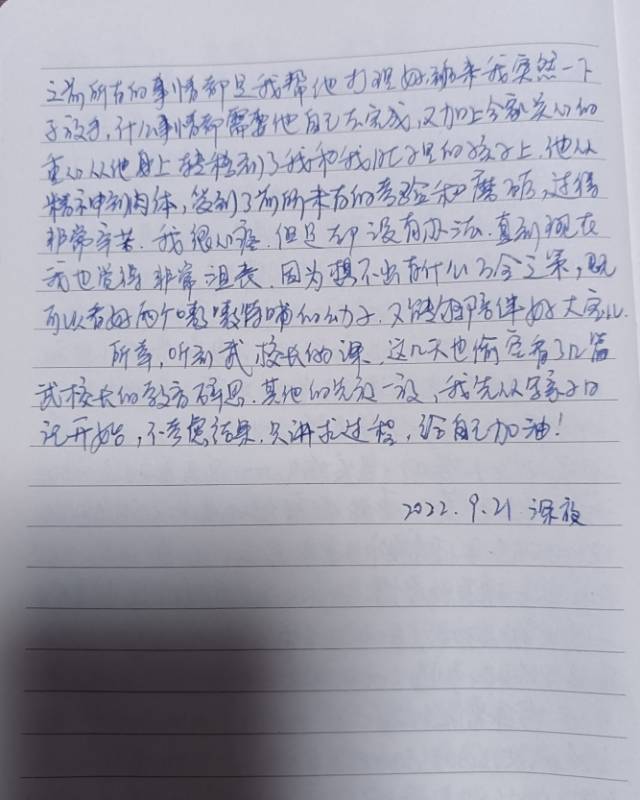 之前所有的事情都是我帮他打理好,越来我突然一下
子放手,什么事情都需要他自己去完成,又加上全家关心的
重心从他身上转移到了我和我肚子里的孩子上.他从
精神到肉体,受到了前所未有的考验和磨砺,过得
非常辛苦.我很心疼.但是却没有办法.直到现在
我也觉得非常沮丧.因为想不出有什么万全之策,既
可以看好两个嗷嗷待哺的幼子.又能陪伴好大宝儿.
所幸,听到武校长的课.这几天也偷空看了几篇
武校长的教育随思.其他的先放一放,我先从写家庭日
记开始,不考虑结果.只讲求过程,给自己加油!
2022.9.21 深夜